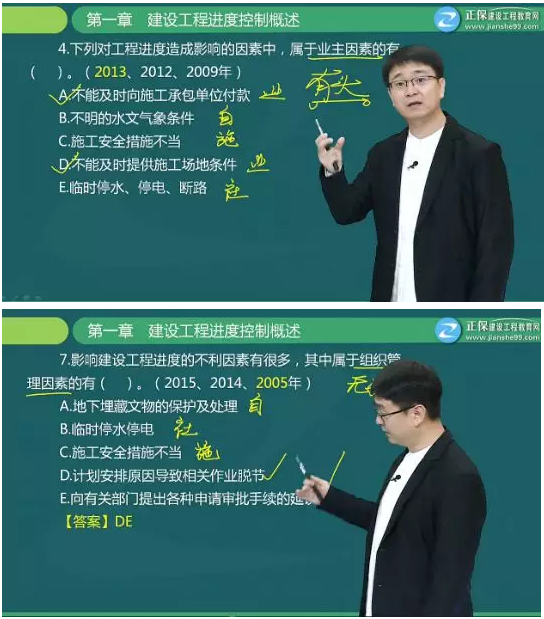 第一章 建设工程进度控制概述
正保建设工程教育网
www.jianshe99.com
4.下列对工程进度造成影响的因素中，属于业主因素的有
（ ）。（2013、2012、2009年）
有关
A.不能及时向施工承包单位付款 业
B.不明的水文气象条件 自
C.施工安全措施不当 施
D.不能及时提供施工场地条件 业
E.临时停水、停电、断路 社
第一章 建设工程进度控制概述
正保建设工程教育网
www.jianshe99.com
7.影响建设工程进度的不利因素有很多，其中属于组织管
理因素的有（ ）。（2015、2014、2005年） 无
A.地下埋藏文物的保护及处理 自
B.临时停水停电 社
C.施工安全措施不当 施
D.计划安排原因导致相关作业脱节
E.向有关部门提出各种申请审批手续的延误
【答案】DE